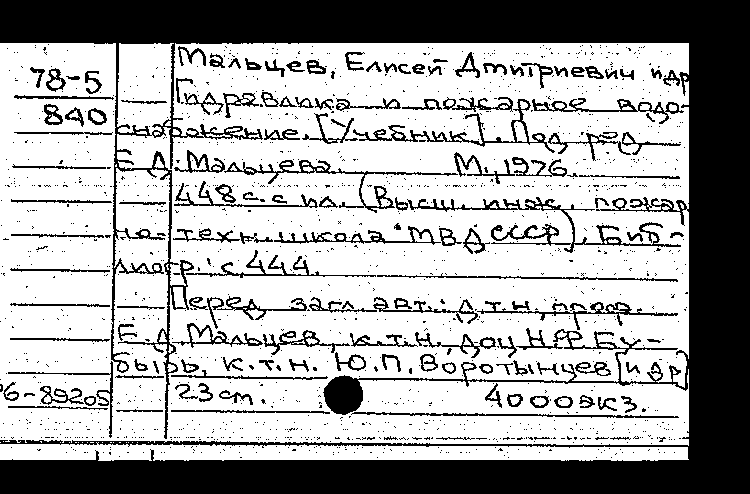 Мальцев, Елисей Дмитриевич и др
78-5
Гидравлика и пожарное водо-
840
снабжение. [Учебник]. Под ред.
Е.Д. Мальцева. М., 1976.
448 с. с ил. (Высш. инж. пожар
но-техн. школа МВД СССР). Биб-
лиогр.: с. 444.
Перед загл. авт.: д.т.н., проф.
Е.Д. Мальцев, к.т.н., доц. Н.Ф. Бу-
бырь, к.т.н. Ю.П. Воротынцев [и др]
6-89205 23 см. 4000 экз.